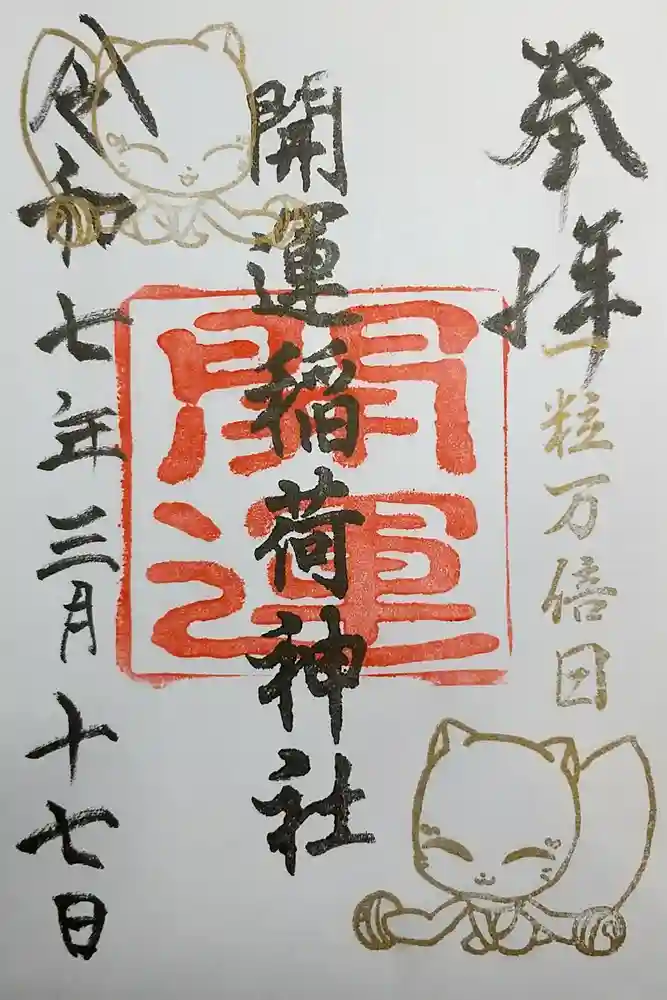 奉拝
一粒万倍日
開運稲荷神社
開運
令和七年三月十七日